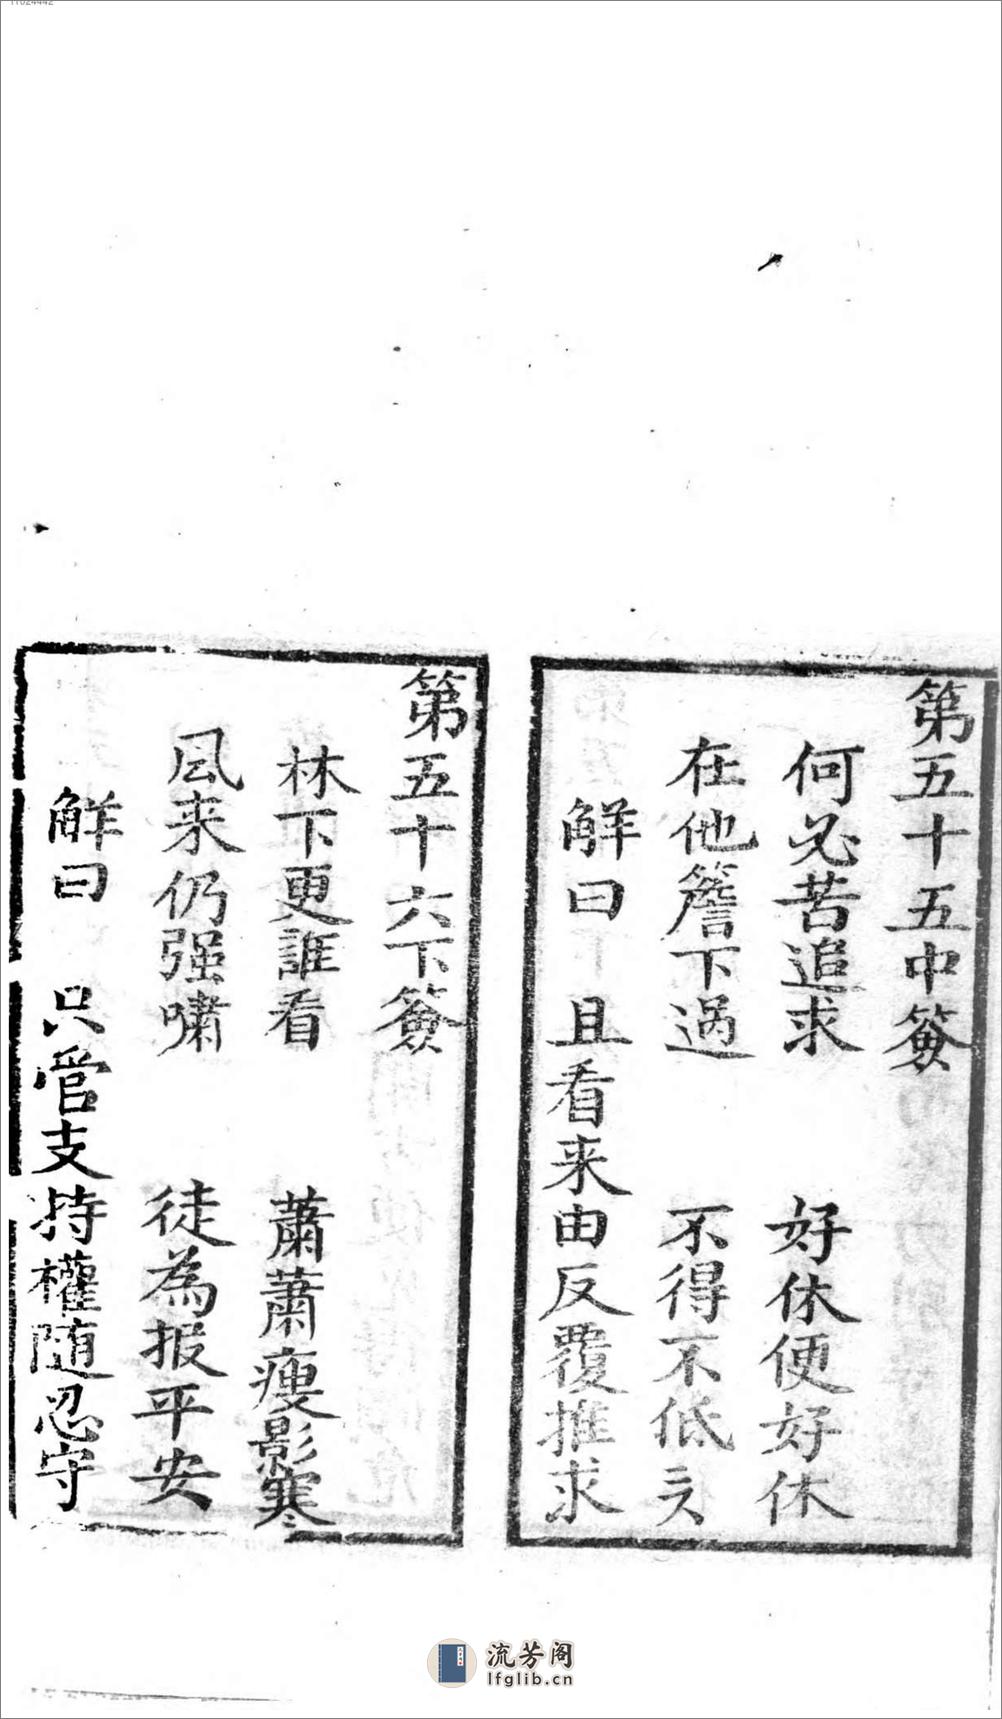 11024442
第五十五中簽
何必苦追求　好休便好休
在他簷下過　不得不低
解曰　且看来由反覆推求
第五十六下簽
林下更誰看　蕭蕭瘦影寒
风来仍强嘯　徒為报平安
解曰　只管支持權随忍守
流芳阁
lfglib.cn